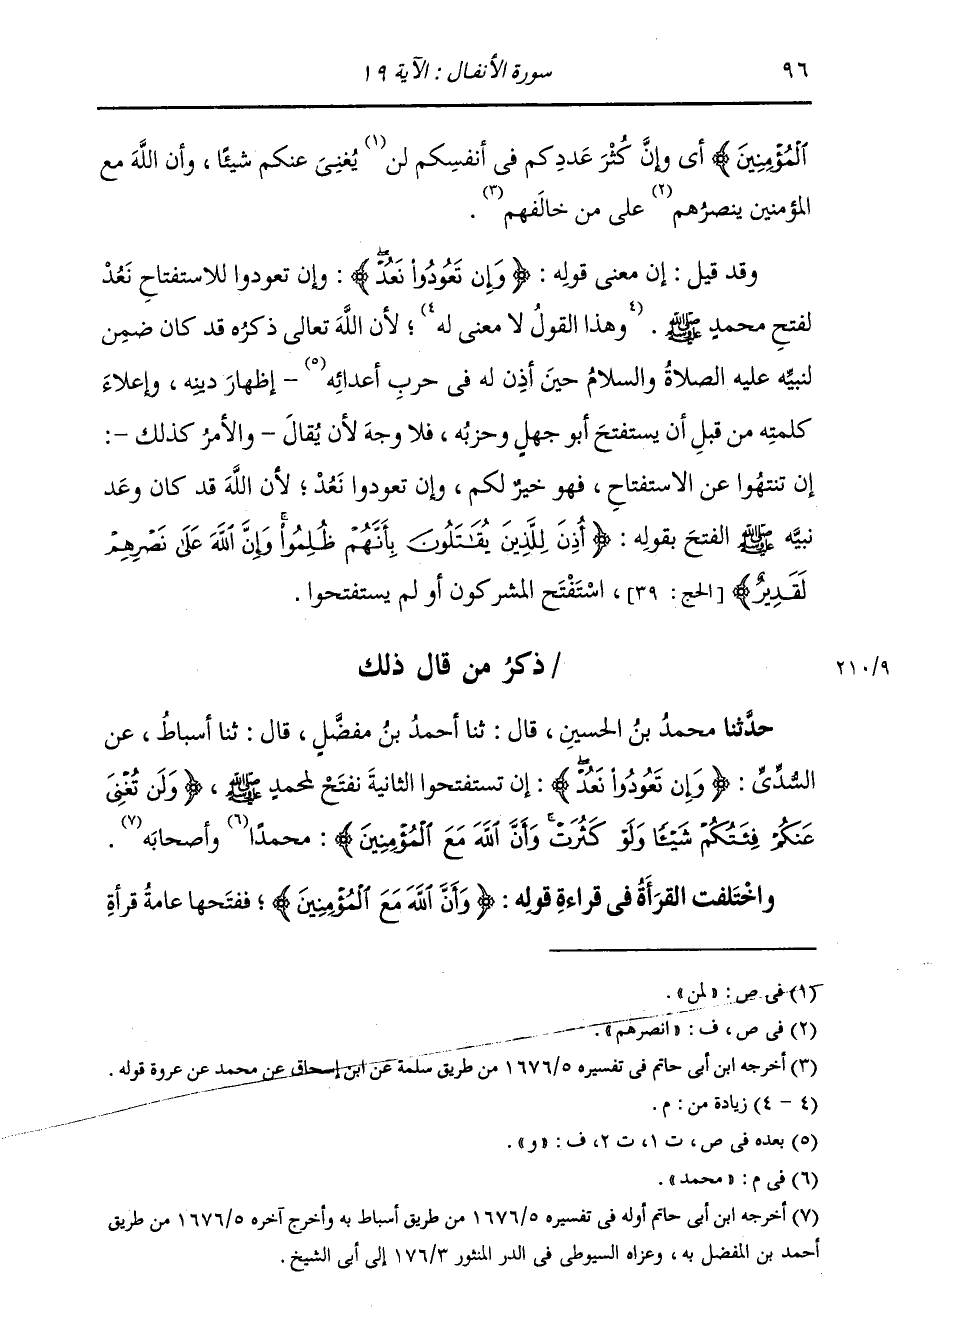 ٩٦
سورة الأنفال : الآية ١٩
ٱلْمُؤْمِنِينَ﴾ أى وإنَّ كُثْرَ عَددِكم فى أنفسِكم لن(١) يُغنِىَ عنكم شيئًا ، وأن اللَّهَ مع
المؤمنين ينصرُهم(٢) على من خالَفهم(٣) .
وقد قيل : إن معنى قولِه : ﴿ وَإِن تَعُودُواْ نَعُدْۖ ﴾ : وإن تعودوا للاستفتاحِ نَعُدْ
لفتحِ محمدٍ ﷺ . (٤وهذا القولُ لا معنى له٤) ؛ لأن اللَّهَ تعالى ذكرُه قد كان ضمِن
لنبيِّه عليه الصلاةُ والسلامُ حينَ أذِن له فى حربِ أعدائِه(٥) – إظهارَ دينِه ، وإعلاءَ
كلمتِه من قبلِ أن يستفتحَ أبو جهلٍ وحزبُه ، فلا وجهَ لأن يُقالَ – والأمرُ كذلك – :
إن تنتهُوا عن الاستفتاحِ ، فهو خيرٌ لكم ، وإن تعودوا نَعُدْ ؛ لأن اللَّهَ قد كان وعَد
نبيَّه ﷺ الفتحَ بقولِه : ﴿ أُذِنَ لِلَّذِينَ يُقَٰتَلُونَ بِأَنَّهُمْ ظُلِمُواْۚ وَإِنَّ ٱللَّهَ عَلَىٰ نَصْرِهِمْ
لَقَدِيرٌ﴾ [الحج : ٣٩] ، اسْتَفْتَح المشركون أو لم يستفتحوا .
/ ذكرُ من قال ذلك
٢١٠/٩
حدَّثنا محمدُ بنُ الحسينِ ، قال : ثنا أحمدُ بنُ مفضَّلٍ ، قال : ثنا أسباطُ ، عن
السُّدِّىِّ : ﴿ وَإِن تَعُودُواْ نَعُدْۖ ﴾ : إن تستفتحوا الثانيةَ نفتَحْ لمحمدٍ ﷺ ، ﴿ وَلَن تُغْنِىَ
عَنكُمْ فِئَتُكُمْ شَيْـًٔا وَلَوْ كَثُرَتْۚ وَأَنَّ ٱللَّهَ مَعَ ٱلْمُؤْمِنِينَ ﴾ : محمدًا(٦) وأصحابَه(٧) .
واخْتَلفت القرَأَةُ فى قراءةِ قولِه : ﴿ وَأَنَّ ٱللَّهَ مَعَ ٱلْمُؤْمِنِينَ ﴾ ؛ ففتَحها عامةُ قرأةِ
(١) فى ص : « لمن » .
(٢) فى ص ، ف : « انصرهم » .
(٣) أخرجه ابن أبى حاتم فى تفسيره ١٦٧٦/٥ من طريق سلمة عن ابن إسحاق عن محمد عن عروة قوله .
(٤ – ٤) زيادة من : م .
(٥) بعده فى ص ، ت ١ ، ت ٢ ، ف : « و » .
(٦) فى م : « محمد » .
(٧) أخرجه ابن أبى حاتم أوله فى تفسيره ١٦٧٦/٥ من طريق أسباط به وأخرج آخره ١٦٧٦/٥ من طريق
أحمد بن المفضل به ، وعزاه السيوطى فى الدر المنثور ١٧٦/٣ إلى أبى الشيخ .